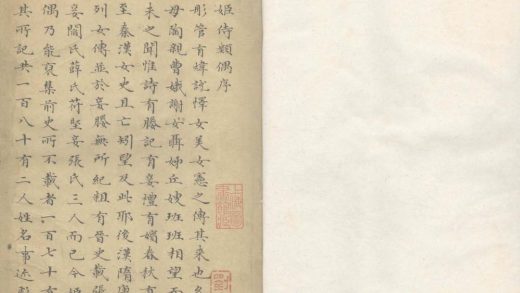 姬侍類偶序
彤管有煒說懌女美女憲之傳其來也
母陶親曹娥謝女聶姊丘嫂班班相望而
未之聞惟詩有媵記有妾禮有嬪春秋
至秦漢女史且亡矧望及此耶後漢隋唐
列女傳並於妾媵無所紀粗有晉史載張
妾閻氏薛氏苻堅妾張氏三人而已今
偶乃能裒集前史所不載者一百七十
其所記共一百八十有二人姓名事迹